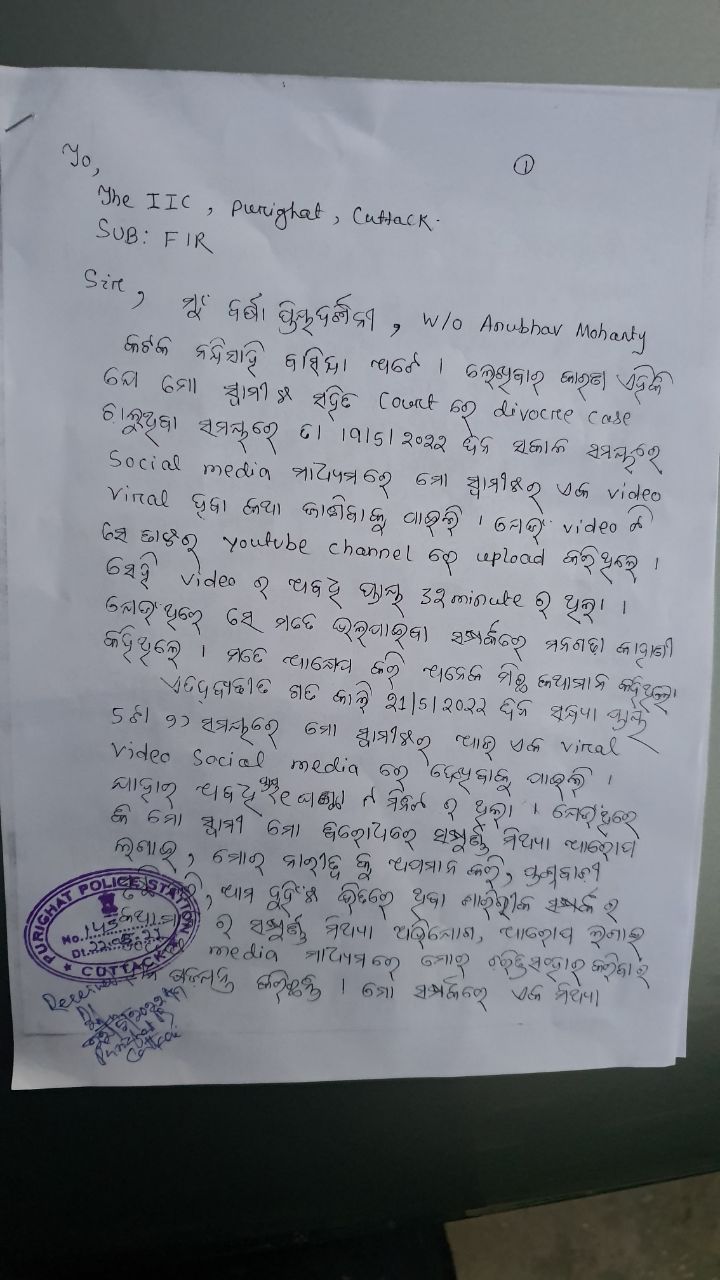 ①
To,
The IIC, Purighat, Cuttack.
SUB: FIR
Sir,
ମୁଁ ବର୍ଷା ପ୍ରିୟଦର୍ଶିନୀ, W/o Anubhav Mohanty
କଟକ ନନ୍ଦିସାହି ବାସିନ୍ଦା ଅଟେ । ଲେଖିବାର କାରଣ ଏହିକି
ଯେ ମୋ ସ୍ୱାମୀଙ୍କ ସହିତ Court ରେ divorce case
ଚାଲୁଥିବା ସମୟରେ ତା 19/5/2022 ଦିନ ସକାଳ ସମୟରେ
Social media ମାଧ୍ୟମରେ ମୋ ସ୍ୱାମୀଙ୍କର ଏକ video
viral ହେବା କଥା ଜାଣିବାକୁ ପାଇଲି । ସେହି video ଟି
ସେ ତାଙ୍କର youtube channel ରେ upload କରିଥିଲେ ।
ସେହି video ର ଅବଧି ପ୍ରାୟ 32 minute ର ଥିଲା ।
ଯେଉଁଥିରେ ସେ ମତେ ଭଲପାଇବା ସମ୍ପର୍କରେ ମନଗଢା କାହାଣୀ
କହିଥିଲେ । ମତେ ଆକ୍ଷେପ କରି ଅନେକ ମିଛ କଥାମାନ କହିଥିଲେ।
ଏତଦ୍‌ବ୍ୟତୀତ ଗତ କାଲି 21/5/2022 ଦିନ ସନ୍ଧ୍ୟା ପ୍ରାୟ
5 ଟା ସମୟରେ ମୋ ସ୍ୱାମୀଙ୍କର ଆଉ ଏକ viral
video social media ରେ ଦେଖିବାକୁ ପାଇଲି ।
ଯାହାର ଅବଧି ପ୍ରାୟ ମିନିଟ ର ଥିଲା । ଯେଉଁଥିରେ
କି ମୋ ସ୍ୱାମୀ ମୋ ବିରୋଧରେ ସମ୍ପୂର୍ଣ୍ଣ ମିଥ୍ୟା ଆରୋପ
ଲଗାଇ, ମୋର ନାରୀତ୍ୱ କୁ ଅପମାନ କରି,
ଆମ ଦୁହିଁଙ୍କ ଭିତରେ ଥିବା ଶାରିରୀକ ସମ୍ପର୍କ ର
ର ସମ୍ପୂର୍ଣ୍ଣ ମିଥ୍ୟା ଅଭିଯୋଗ, ଆରୋପ ଲଗାଇ
media ମାଧ୍ୟମରେ ମୋର ଚରିତ୍ର ସଂହାର କରିବାର
କରିଛନ୍ତି । ମୋ ସମ୍ପର୍କରେ ଏକ ମିଥ୍ୟା
PURIGHAT POLICE STATION
No. 145
Dt. 22.05.22
CUTTACK
Received